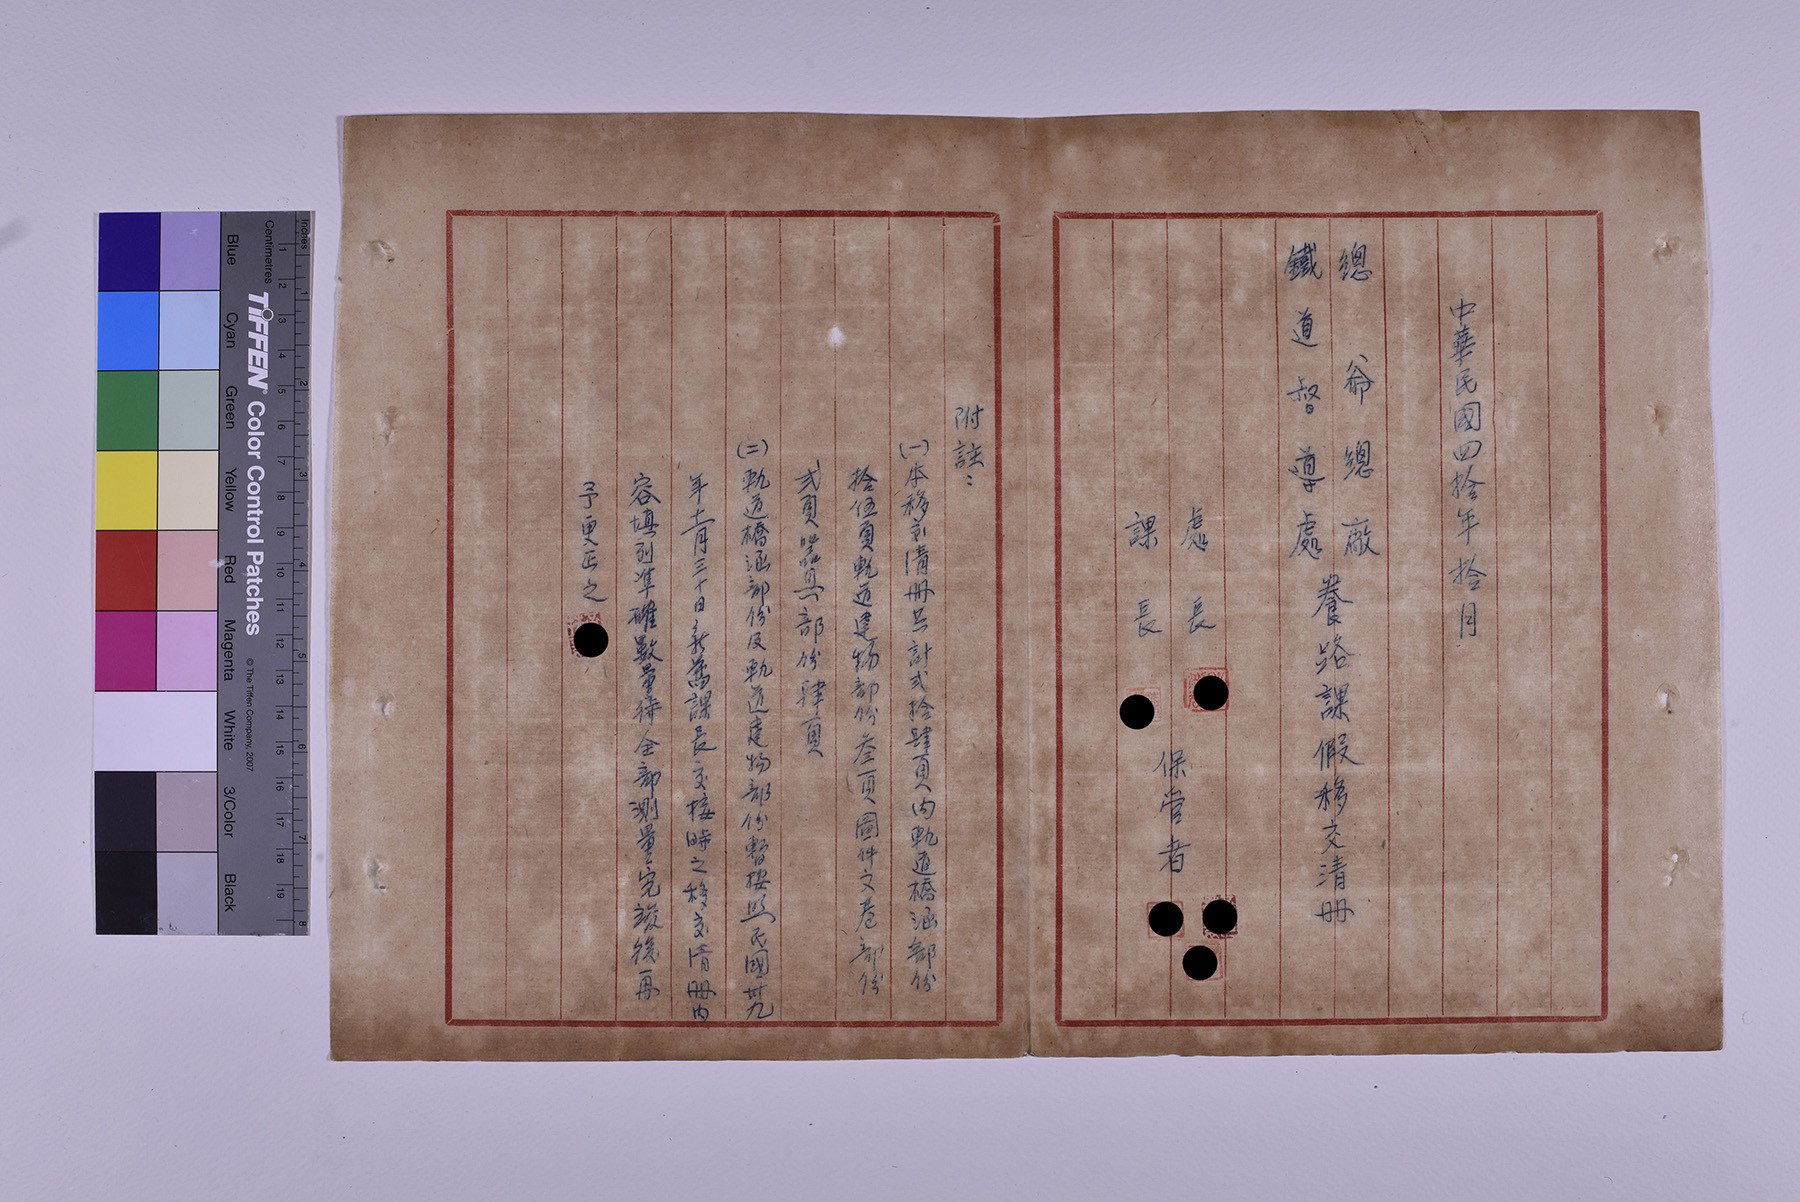 中華民國四拾年拾月
總爺總廠
鐵道督導處
養路課假移交清冊
處長
課長
保管者
附註:
(一)本移交清冊共計式拾肆頁內軌道橋涵部份
拾伍頁軌道建物部份叁頁圖件文卷部份
式頁器具部份肆頁
(二)軌道橋涵部份及軌道建物部份暫按照民國卅九
年十一月三十日新舊課長交接時之移交清冊內
容填列準確數量待全部測量完竣後再
予更正之
Inches
Centimetres
TIFFEN® Color Control Patches
© The Tiffen Company, 2007
Blue
Cyan
Green
Yellow
Red
Magenta
White
3/Color
Black
1 2 3 4 5 6 7 8 9 10 11 12 13 14 15 16 17 18 19
1 2 3 4 5 6 7 8